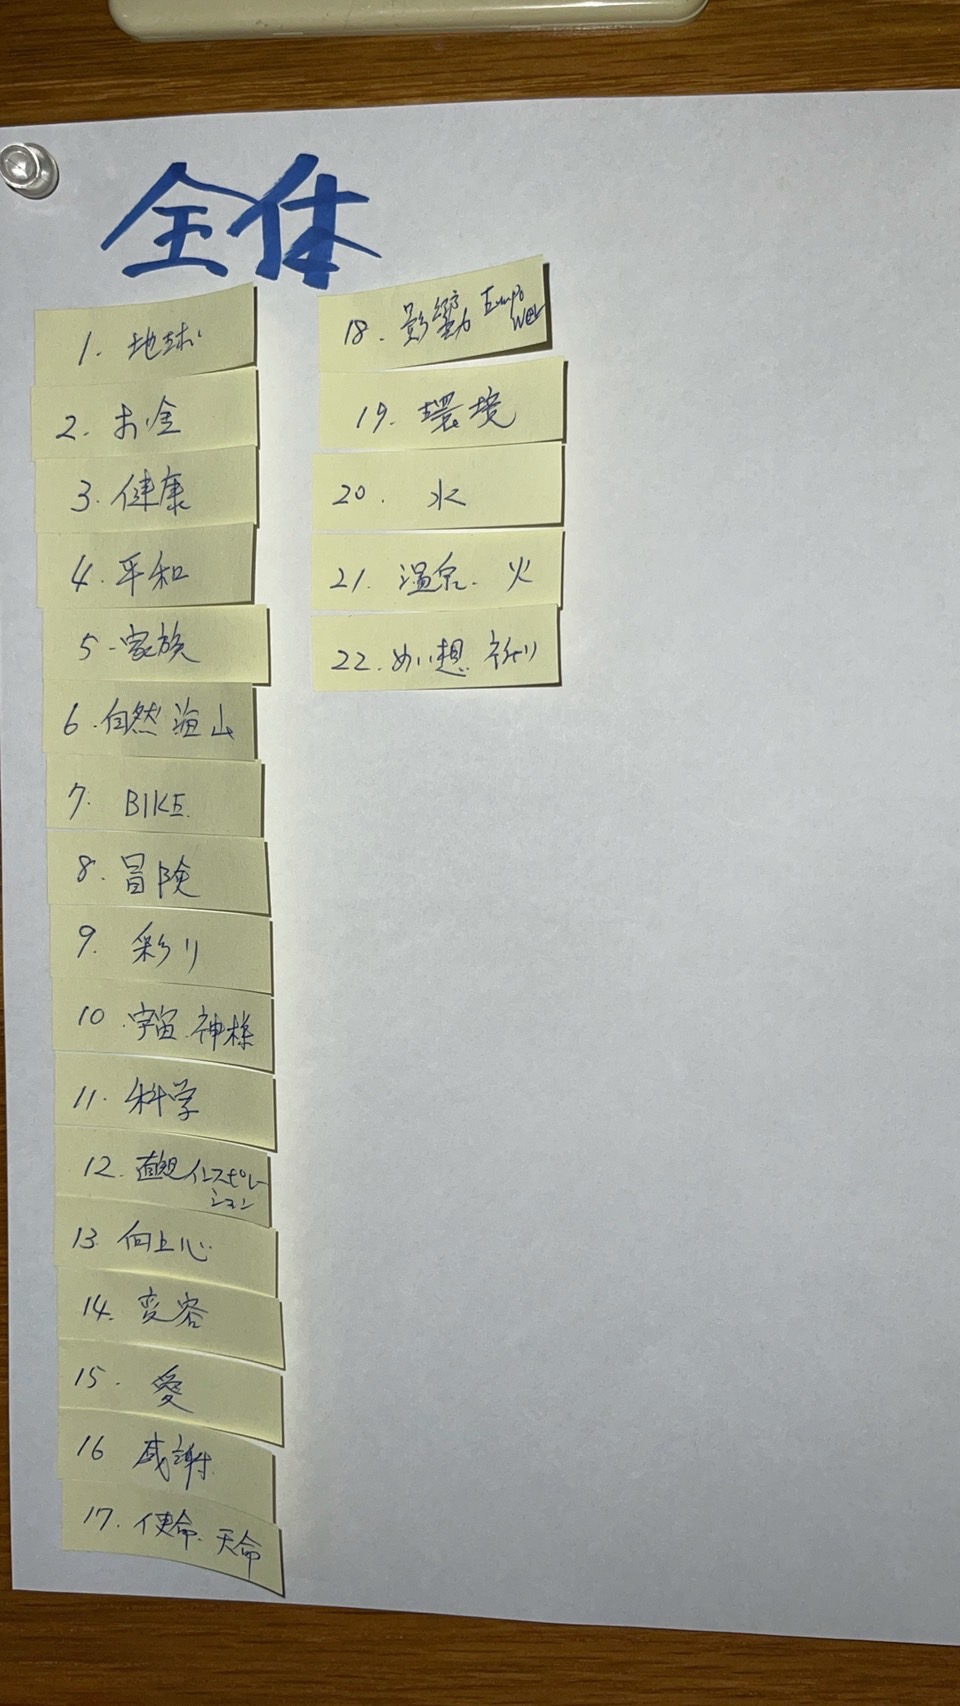 全体
1. 地球
2. お金
3. 健康
4. 平和
5. 家族
6. 自然 海 山
7. BIKE
8. 冒険
9. 彩り
10. 宇宙. 神様
11. 科学
12. 直観 インスピレー
ション
13. 向上心
14. 変容
15. 愛
16 感謝
17. 使命. 天命
18. 影響力 Empo
wer
19. 環境
20. 水
21. 温泉. 火
22. めい想. 祈り